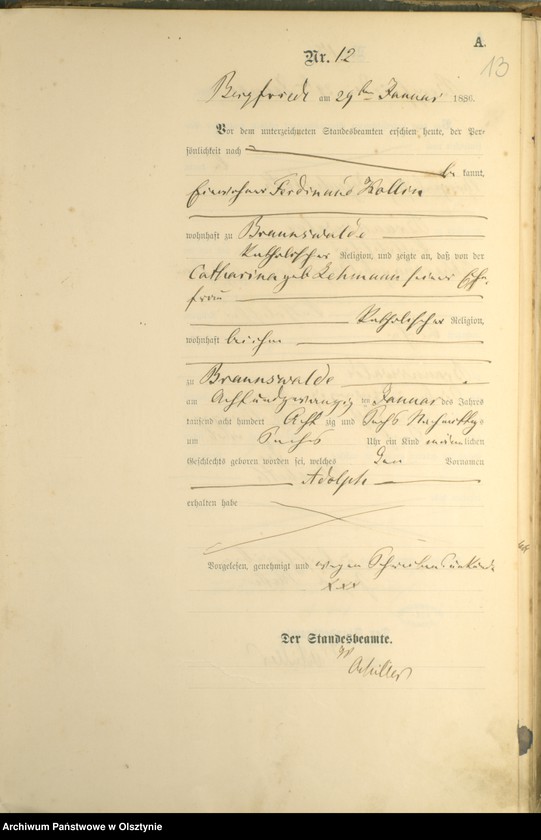 A.
13
Nr. 12
Bergfriede am 29ten Januar 1886.
Vor dem unterzeichneten Standesbeamten erschien heute, der Per-
sönlichkeit nach
be kannt,
Einwohner Ferdinand Kollin
wohnhaft zu Braunswalde
Katholischer Religion, und zeigte an, daß von der
Catharina geb Lehmann seiner Ehe-
frau
Katholischer Religion,
wohnhaft bei ihm
zu Braunswalde
am Acht und zwanzig ten Januar des Jahrs
tausend acht hundert Acht zig und Sechs Nachmittags
um Sechs Uhr ein Kind männlichen
Geschlechts geboren worden sei, welches den Vornamen
Adolph
erhalten habe
Vorgelesen, genehmigt und wegen Schreibensunkunde
xxx
Der Standesbeamte.
Archiwum Państwowe w Olsztynie